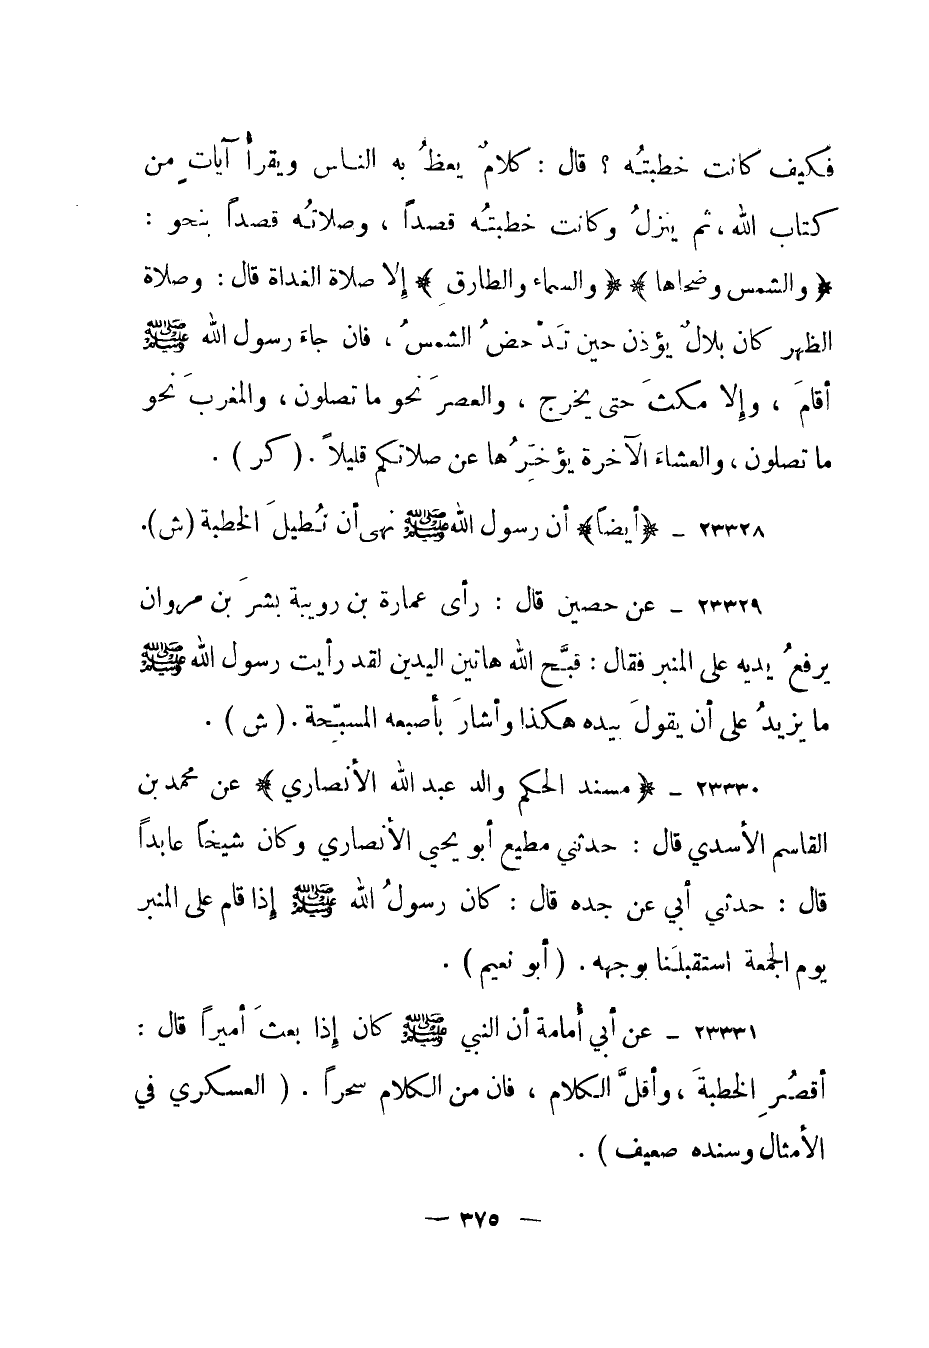 فكيف كانت خطبتُه ؟ قال : كلامٌ يعظُ به الناس ويقرأ آياتٍ من
كتاب الله ، ثم ينزلُ وكانت خطبتُه قصداً ، وصلاتُه قصداً بنحو :
﴿ والشمس وضحاها ﴾ ﴿ والسماء والطارقِ ﴾ إلا صلاة الغداة قال : وصلاة
الظهر كان بلالٌ يؤذن حين تَدْحضُ الشمسُ ، فان جاءَ رسول الله ﷺ
أقامَ ، وإلا مكثَ حتى يخرج ، والعصرَ نحو ما تصلون ، والمغربَ نحو
ما تصلون ، والعشاءَ الآخرة يؤخّرُها عن صلاتكم قليلاً . ( كر ) .
٢٣٣٢٨ ـ ﴿أيضاً﴾ أن رسول الله ﷺ نهى أن نُطيلَ الخطبة (ش).
٢٣٣٢٩ ـ عن حصين قال : رأى عمارة بن رويبة بشرَ بن مروان
يرفعُ يديه على المنبر فقال : قبَّح الله هاتين اليدين لقد رأيت رسول الله ﷺ
ما يزيدُ على أن يقولَ بيده هكذا وأشارَ بأصبعه المسبّحة . ( ش ) .
٢٣٣٣٠ ـ ﴿ مسند الحكم والد عبد الله الأنصاري ﴾ عن محمد بن
القاسم الأسدي قال : حدثني مطيع أبو يحيى الأنصاري وكان شيخاً عابداً
قال : حدثني أبي عن جده قال : كان رسولُ الله ﷺ إذا قام على المنبر
يوم الجمعة استقبلَنا بوجهه . ( أبو نعيم ) .
٢٣٣٣١ ـ عن أبي أمامة أن النبي ﷺ كان إذا بعثَ أميراً قال :
أقصُرِ الخطبةَ ، وأقلَّ الكلام ، فان من الكلام سحراً . ( العسكري في
الأمثال وسنده ضعيف ) .
— ٣٧٥ —